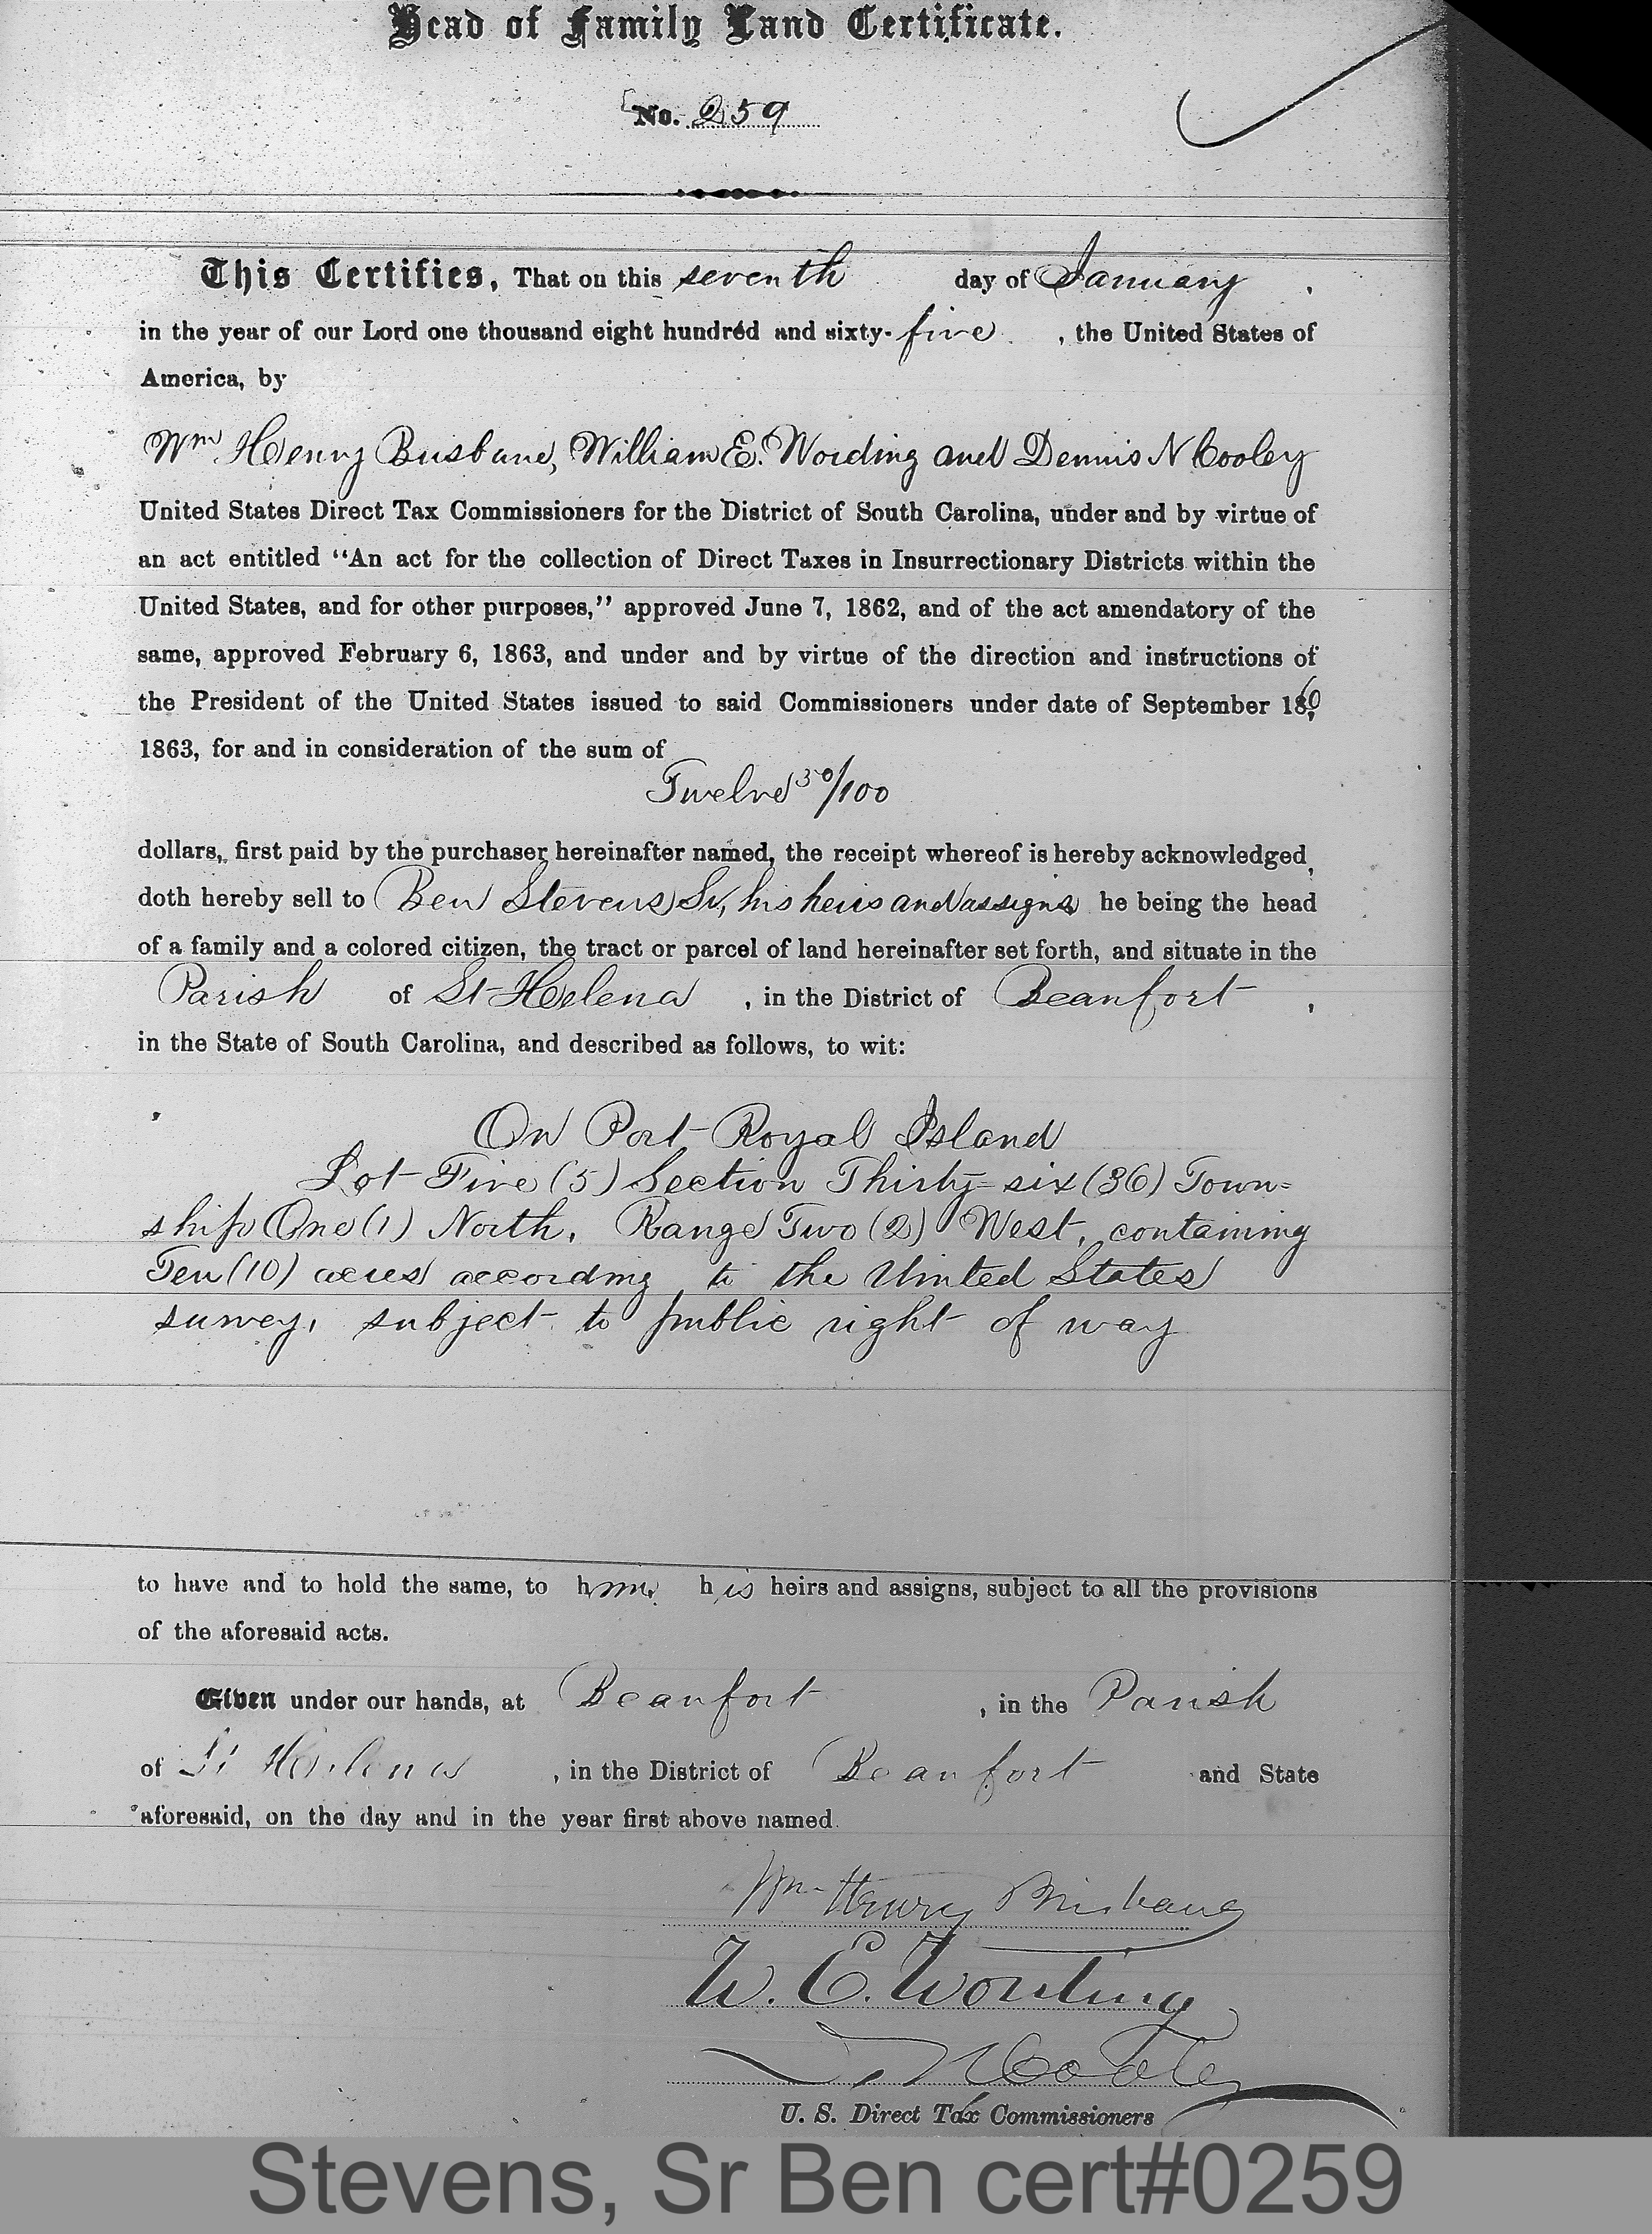 Head of Family Land Certificate.
No. 259
This Certifies, That on this seventh day of January,
in the year of our Lord one thousand eight hundred and sixty-five, the United States of
America, by
Wm Henry Brisbane, William E. Wording and Dennis N Cooley
United States Direct Tax Commissioners for the District of South Carolina, under and by virtue of
an act entitled "An act for the collection of Direct Taxes in Insurrectionary Districts within the
United States, and for other purposes," approved June 7, 1862, and of the act amendatory of the
same, approved February 6, 1863, and under and by virtue of the direction and instructions of
the President of the United States issued to said Commissioners under date of September 16,
1863, for and in consideration of the sum of
Twelve 50/100
dollars, first paid by the purchaser hereinafter named, the receipt whereof is hereby acknowledged,
doth hereby sell to Ben Stevens Sr, his heirs and assigns he being the head
of a family and a colored citizen, the tract or parcel of land hereinafter set forth, and situate in the
Parish of St Helena, in the District of Beaufort,
in the State of South Carolina, and described as follows, to wit:
On Port Royal Island
Lot Five (5) Section Thirty-six (36) Town=
ship One (1) North, Range Two (2) West, containing
Ten (10) acres according to the United States
survey, subject to public right of way
to have and to hold the same, to him, his heirs and assigns, subject to all the provisions
of the aforesaid acts.
Given under our hands, at Beaufort, in the Parish
of St Helena, in the District of Beaufort and State
aforesaid, on the day and in the year first above named.
Wm Henry Brisbane
W. E. Wording
D. N Cooley
U. S. Direct Tax Commissioners
Stevens, Sr Ben cert#0259